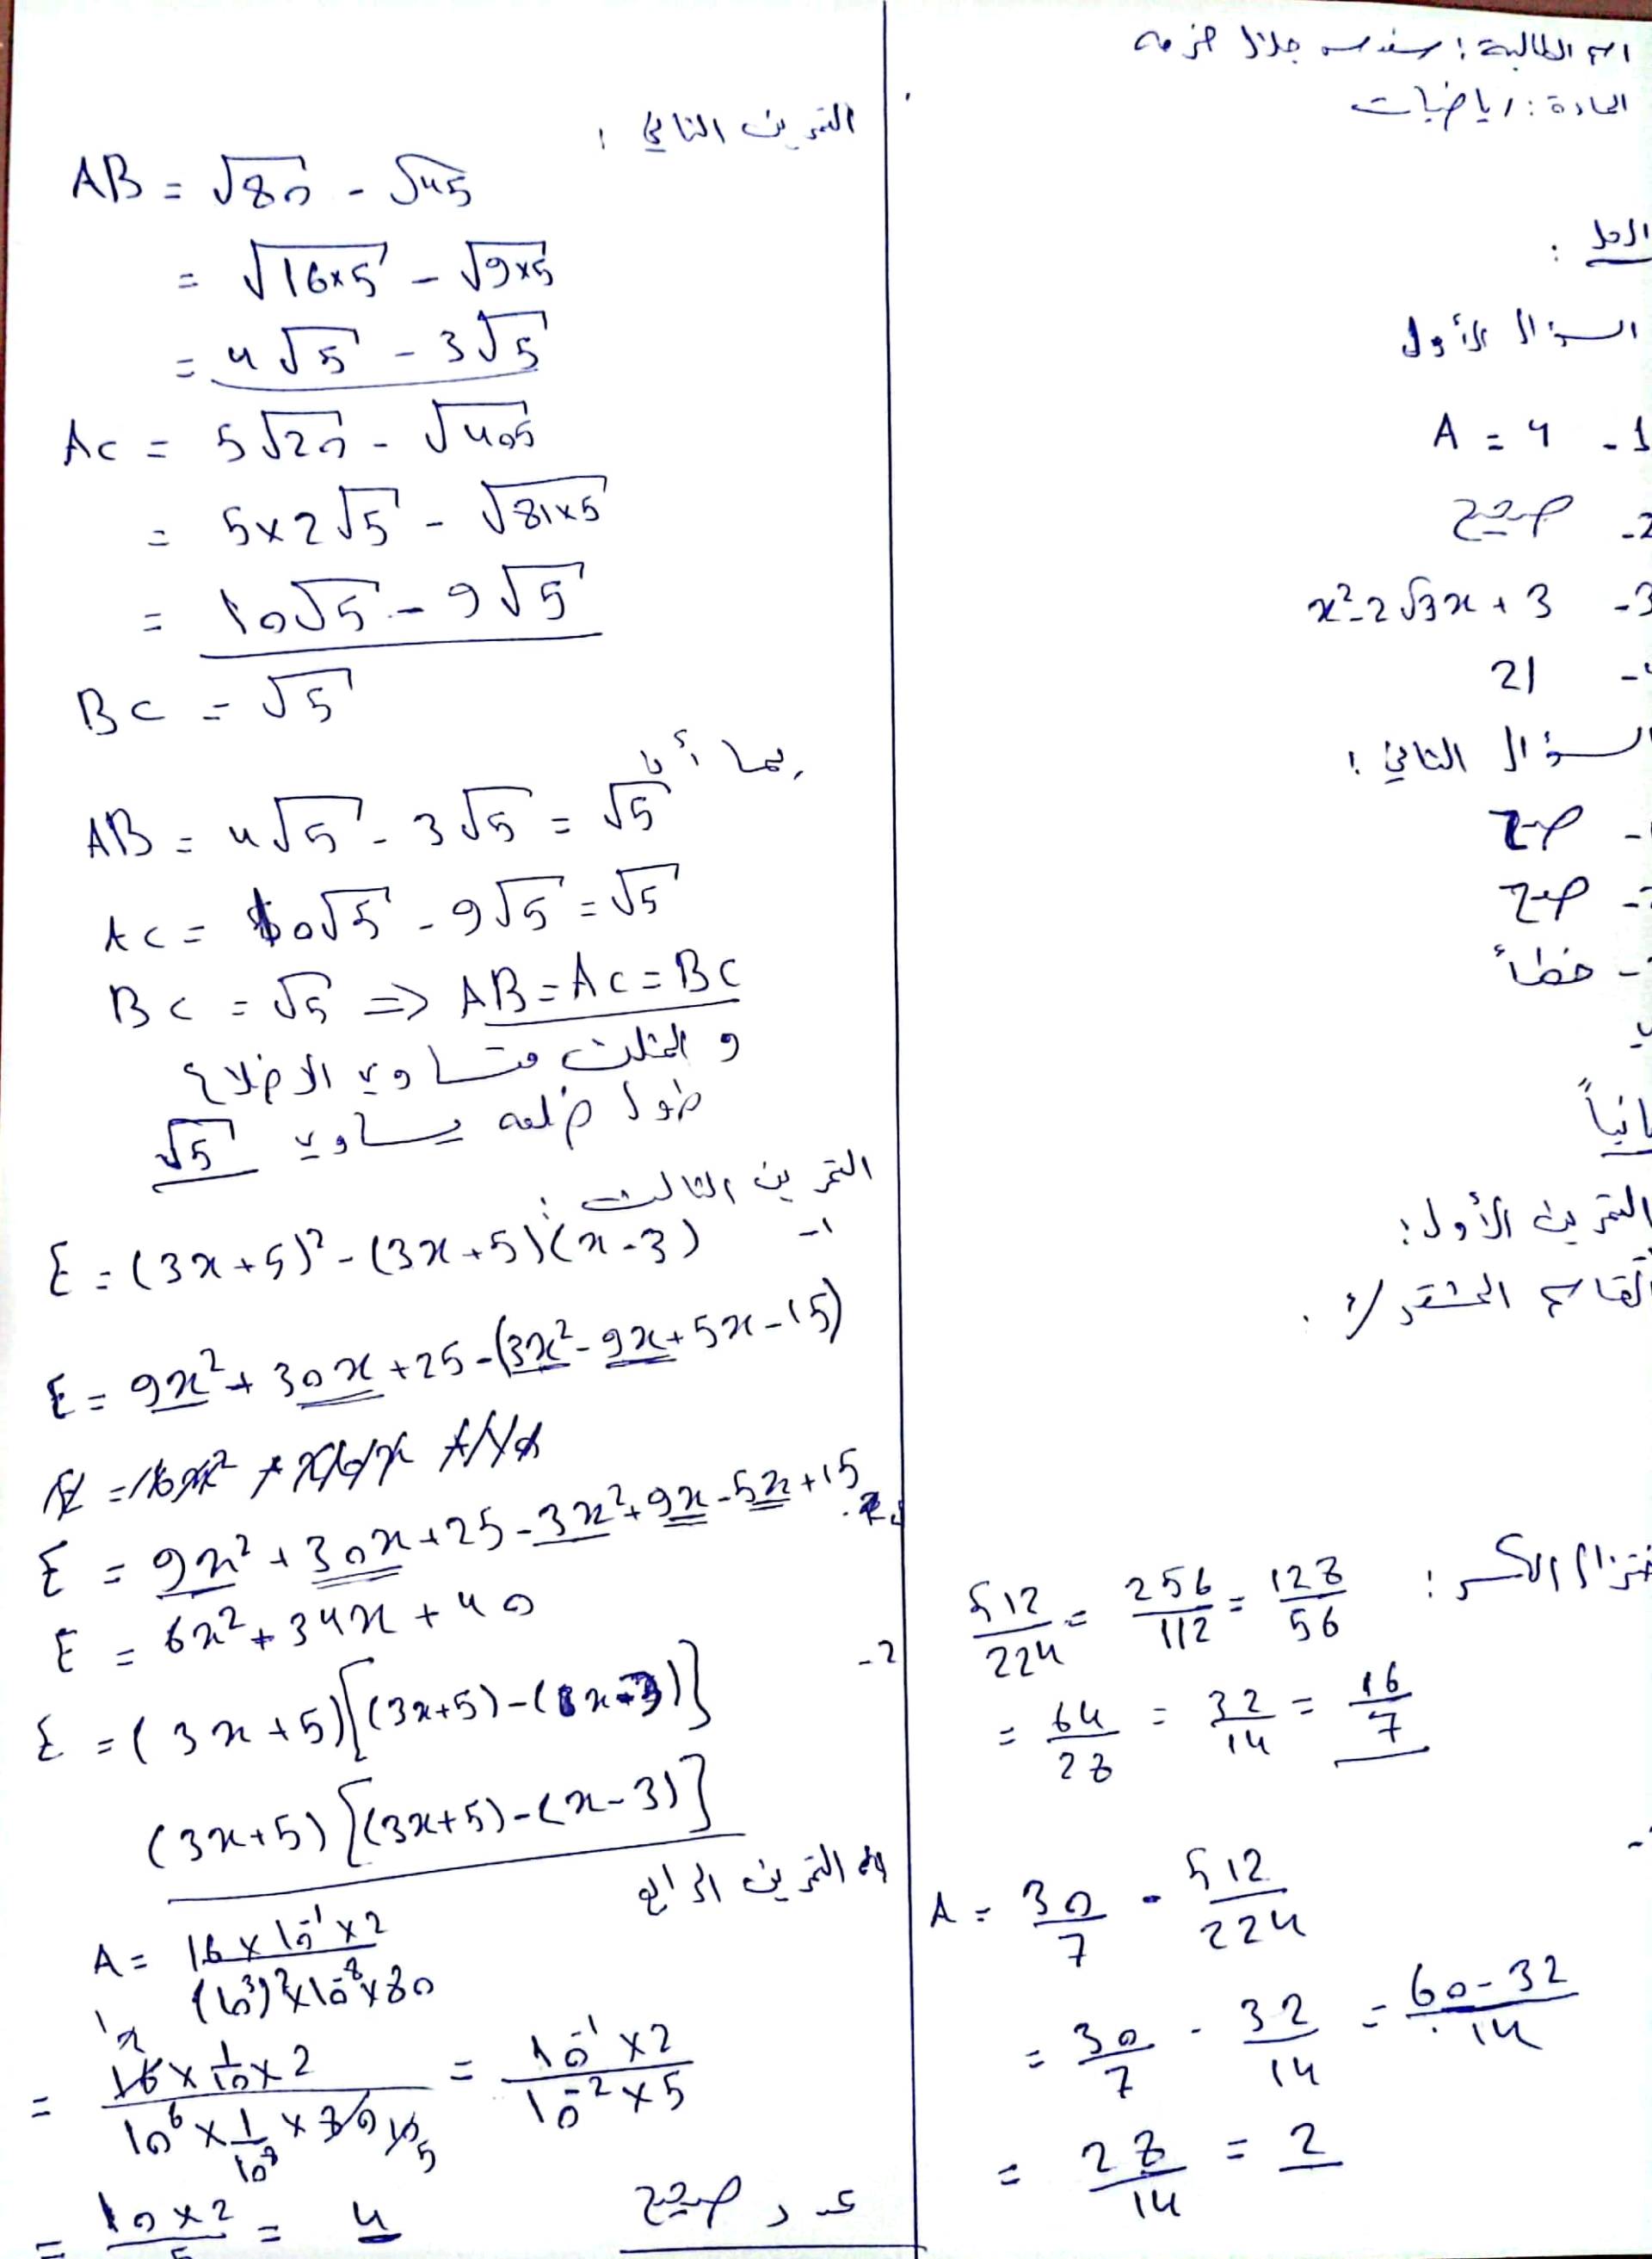 اسم الطالبة: سندس جلال حزمه
المادة: رياضيات
الحل:
السؤال الأول
1- A = 4
2- صحيح
3- x²-2√3x + 3
21
السؤال الثاني:
صح
صح
خطأ
ثانياً
التمرين الأول:
القاسم المشترك
اختزال الكسر:
512/224 = 256/112 = 128/56
= 64/28 = 32/14 = 16/7
A = 30/7 - 512/224
= 30/7 - 32/14 = 60-32/14
= 28/14 = 2
التمرين الثاني:
AB = √80 - √45
= √16×5 - √9×5
= 4√5 - 3√5
AC = 5√20 - √405
= 5×2√5 - √81×5
= 10√5 - 9√5
BC = √5
بما أن
AB = 4√5 - 3√5 = √5
AC = 10√5 - 9√5 = √5
BC = √5 => AB = AC = BC
و المثلث متساوي الاضلاع
طول ضلعه يساوي √5
التمرين الثالث:
1- E = (3x+5)² - (3x+5)(x-3)
E = 9x² + 30x + 25 - (3x² - 9x + 5x - 15)
E = 9x² + 30x + 25 - 3x² + 9x - 5x + 15
E = 6x² + 34x + 40
2- E = (3x+5)[(3x+5)-(x-3)]
(3x+5)[(3x+5)-(x-3)]
التمرين الرابع
A = 16×10⁻¹×2/(10³)²×10⁻⁸×80
= 16×1/10×2/10⁶×1/10⁸×80 = 10⁻¹×2/10⁻²×5
= 10×2/5 = 4
عدد صحيح